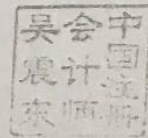 中国注册
会计师
吴震东